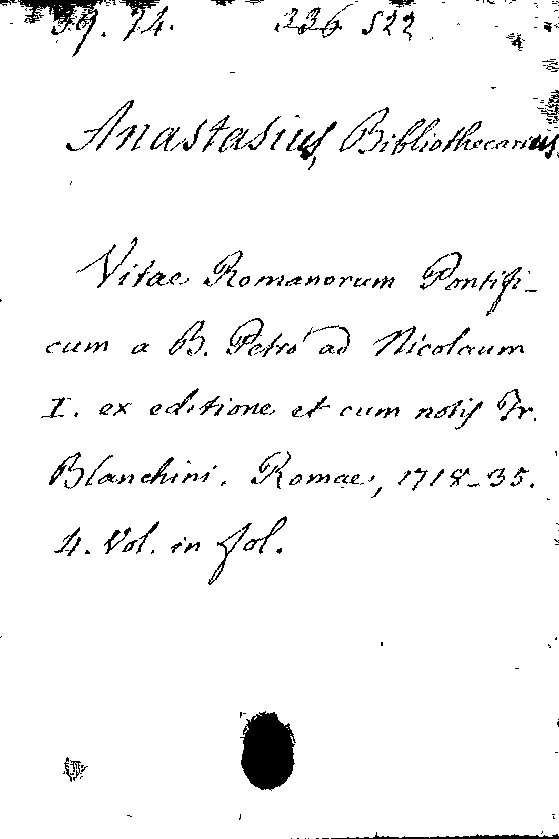 39. 74. 336 522
Anastasius, Bibliothecarius
Vitae Romanorum Pontifi-
cum a B. Petro ad Nicolaum
I. ex editione et cum notis Fr.
Blanchini. Romae, 1718-35.
4. Vol. in fol.